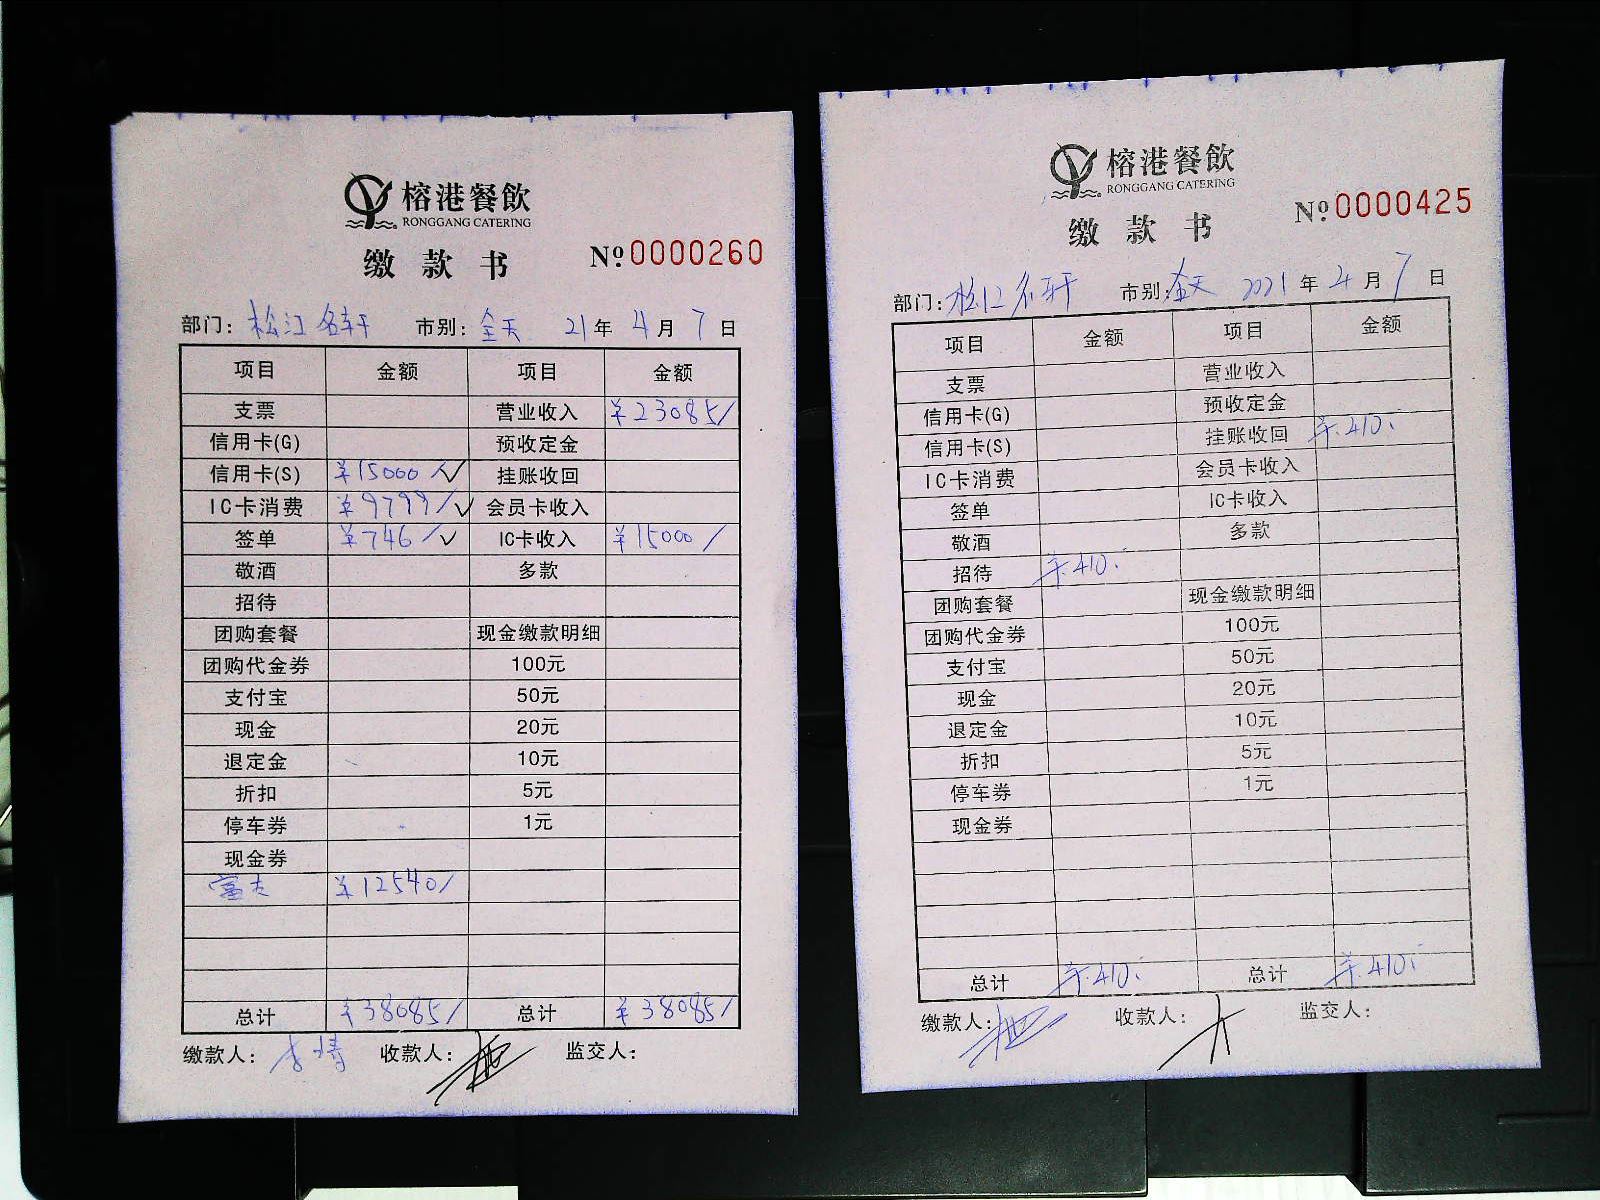 榕港餐飲
RONGGANG CATERING
缴款书
№0000260
部门：松江名轩 市别：全天 21年4月7日
项目 金额 项目 金额
支票 营业收入 ¥23085/
信用卡(G) 预收定金
信用卡(S) ¥15000/√ 挂账收回
IC卡消费 ¥9799/√ 会员卡收入
签单 ¥746/√ IC卡收入 ¥15000/
敬酒 多款
招待
团购套餐 现金缴款明细
团购代金券 100元
支付宝 50元
现金 20元
退定金 10元
折扣 5元
停车券 1元
现金券
¥12540/
总计 ¥38085/ 总计 ¥38085/
缴款人： 收款人： 监交人：
榕港餐飲
RONGGANG CATERING
缴款书
№0000425
部门：松江名轩 市别：全天 2021年4月7日
项目 金额 项目 金额
支票 营业收入
信用卡(G) 预收定金
信用卡(S) 挂账收回 ¥410.
IC卡消费 会员卡收入
签单 IC卡收入
敬酒 多款
招待 ¥410.
团购套餐 现金缴款明细
团购代金券 100元
支付宝 50元
现金 20元
退定金 10元
折扣 5元
停车券 1元
现金券
总计 ¥410. 总计 ¥410.
缴款人： 收款人： 监交人：